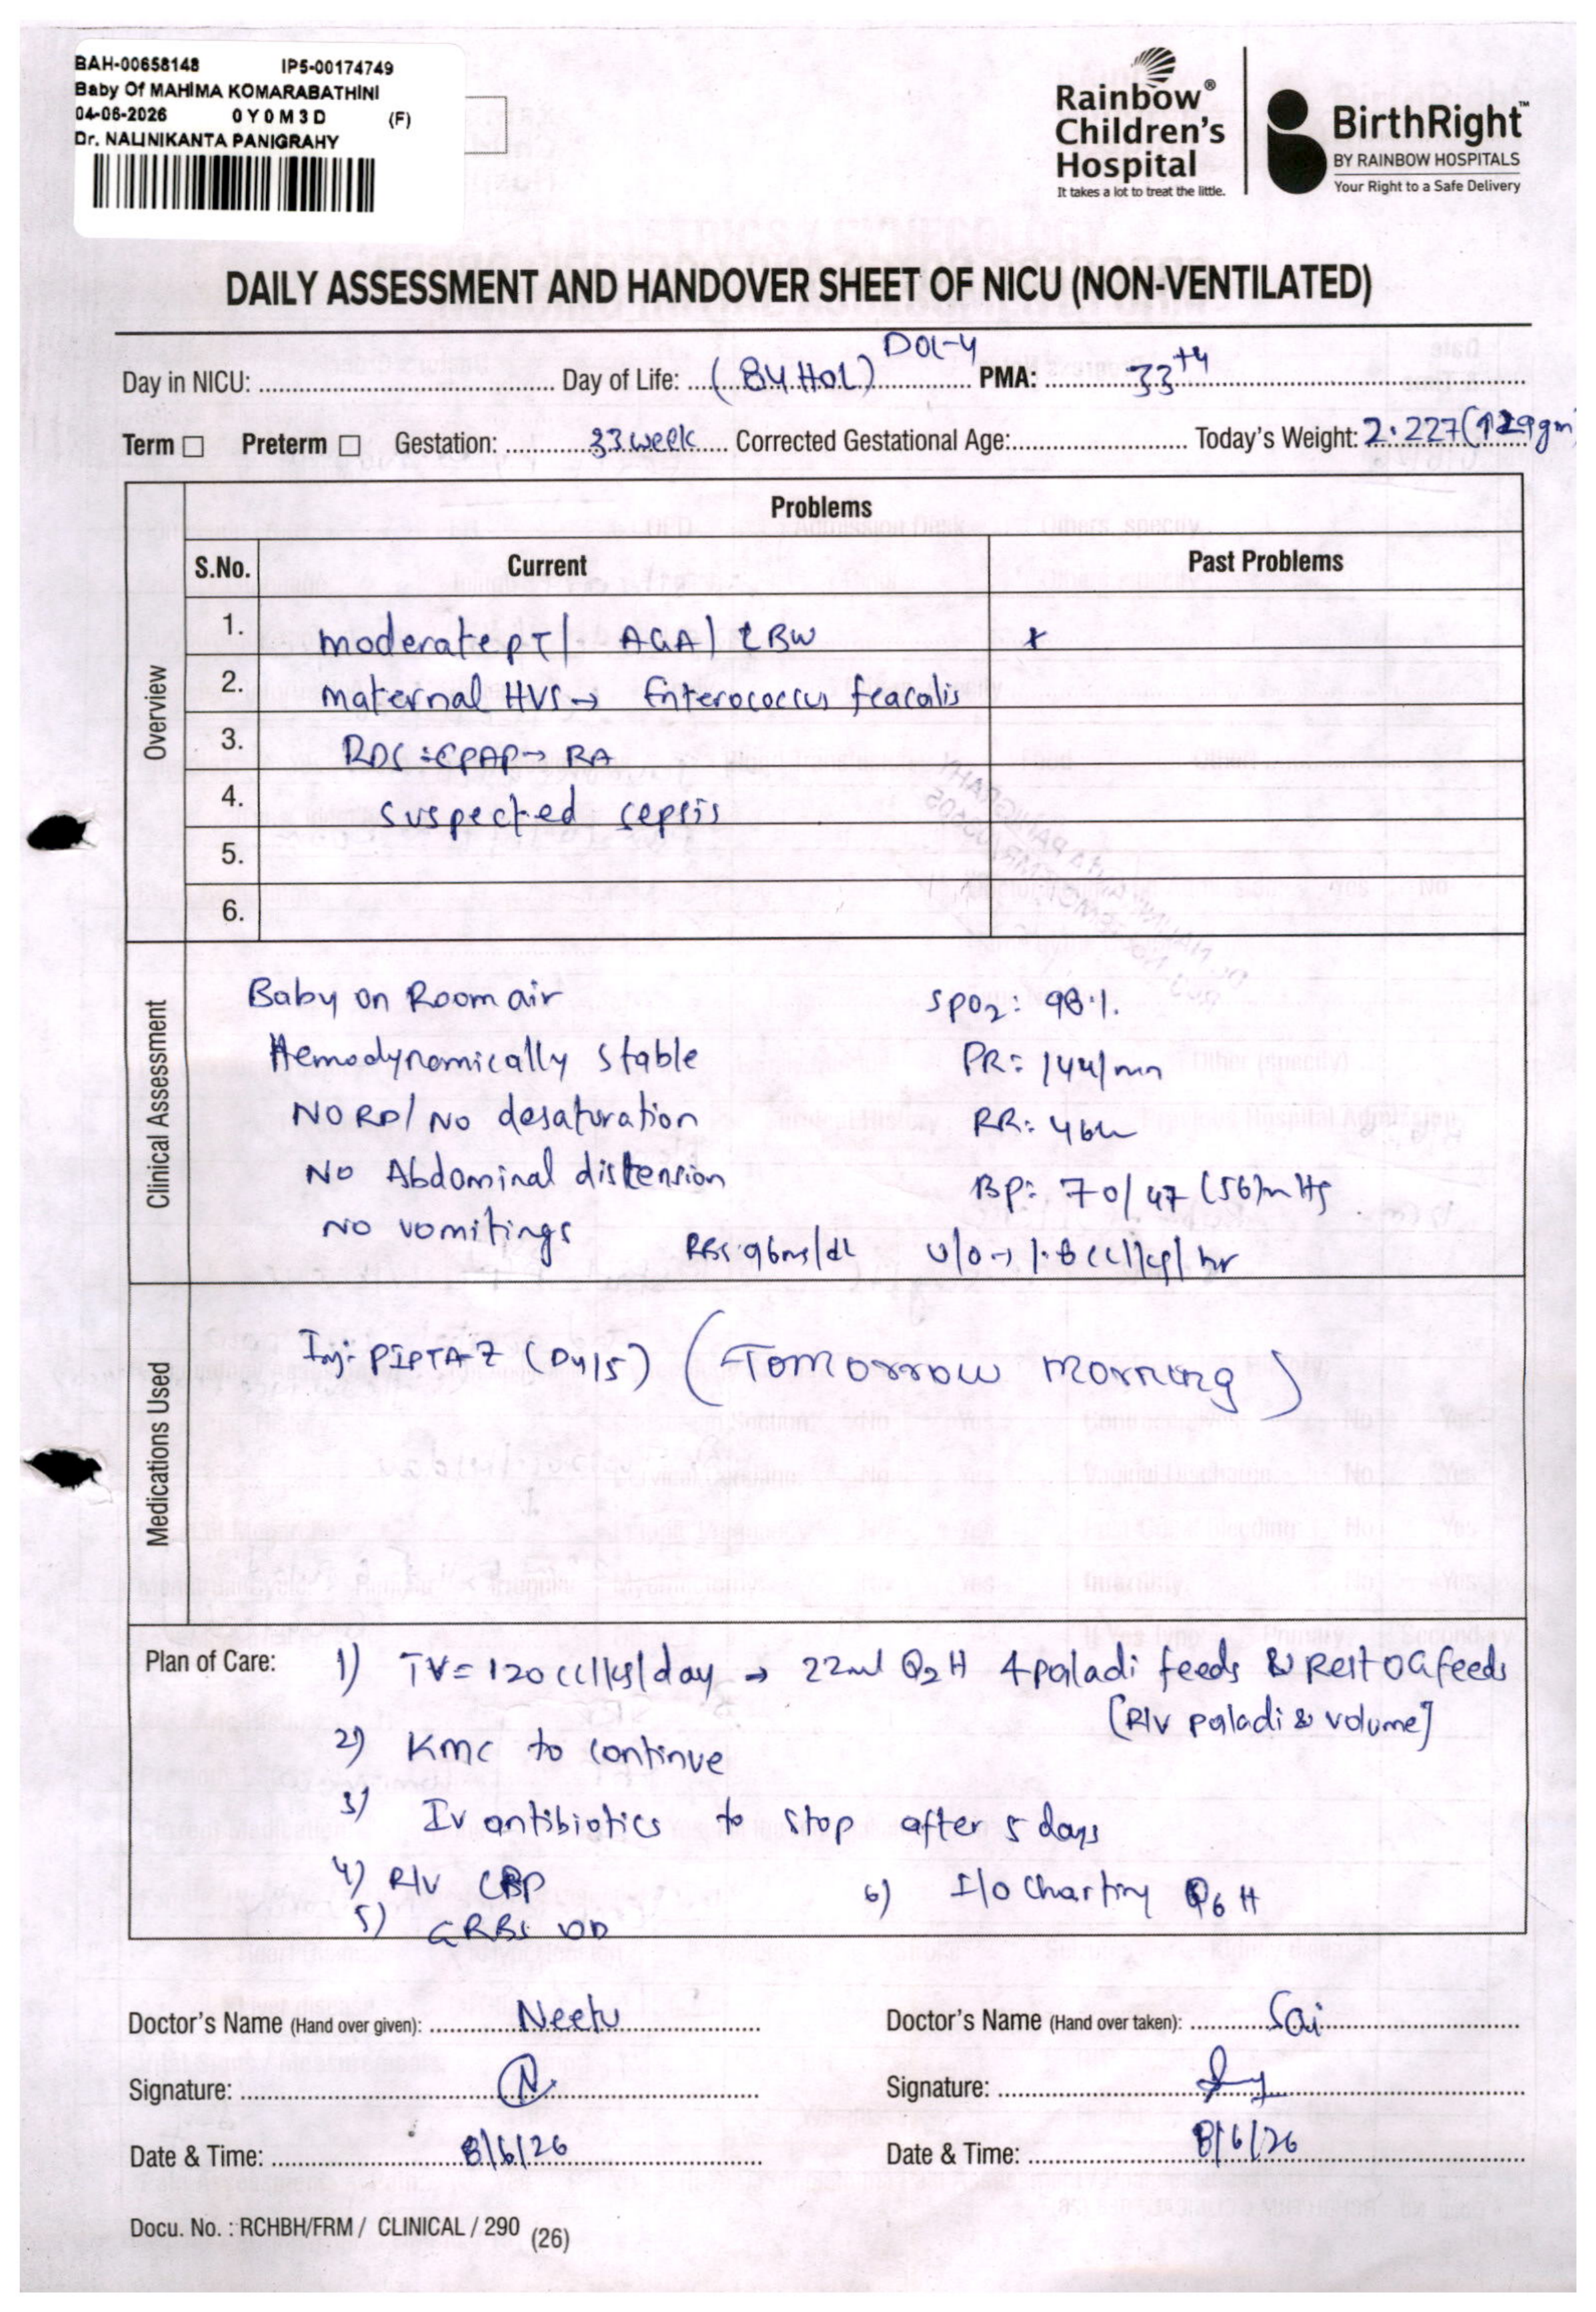 BAH-00658148 IP5-00174749
Baby Of MAHIMA KOMARABATHINI
04-06-2026 0Y0M3D (F)
Dr. NALINIKANTA PANIGRAHY
Rainbow®
Children's
Hospital
It takes a lot to treat the little.
BirthRight™
BY RAINBOW HOSPITALS
Your Right to a Safe Delivery
DAILY ASSESSMENT AND HANDOVER SHEET OF NICU (NON-VENTILATED)
DOL-4
Day in NICU: Day of Life: (84 HOL) PMA: 33+4
Term ☐ Preterm ☐ Gestation: 33 week Corrected Gestational Age: Today's Weight: 2.227 (129gm)
Problems
S.No. Current Past Problems
Overview
1. moderate PT/ AGA/ LBW x
2. maternal HVS → Enterococcus feacalis
3. RDS :CPAP→ RA
4. suspected sepsis
5.
6.
Clinical Assessment
Baby on Room air SpO2: 98%.
Hemodynamically stable PR: 144/mn
NO RD/ No desaturation RR: 46
No Abdominal distension BP: 70/47 (56)mHg
No vomitings RBS: 96mg/dl U/O→ 1.8 cc/kg/hr
Medications Used
Inj: PIPTA-Z (D4/5) (Tomorrow morning)
Plan of Care:
1) TV= 120 cc/kg/day → 22ml Q2H 4 paladi feeds & Rest OG feeds
[R/v paladi & volume]
2) KMC to continue
3) Iv antibiotics to stop after 5 days
4) R/v CBP
5) GRBS OD
6) I/o Charting Q6H
Doctor's Name (Hand over given): Neetu
Doctor's Name (Hand over taken): Sai
Signature: N
Signature:
Date & Time: 8/6/26
Date & Time: 8/6/26
Docu. No. : RCHBH/FRM / CLINICAL / 290 (26)